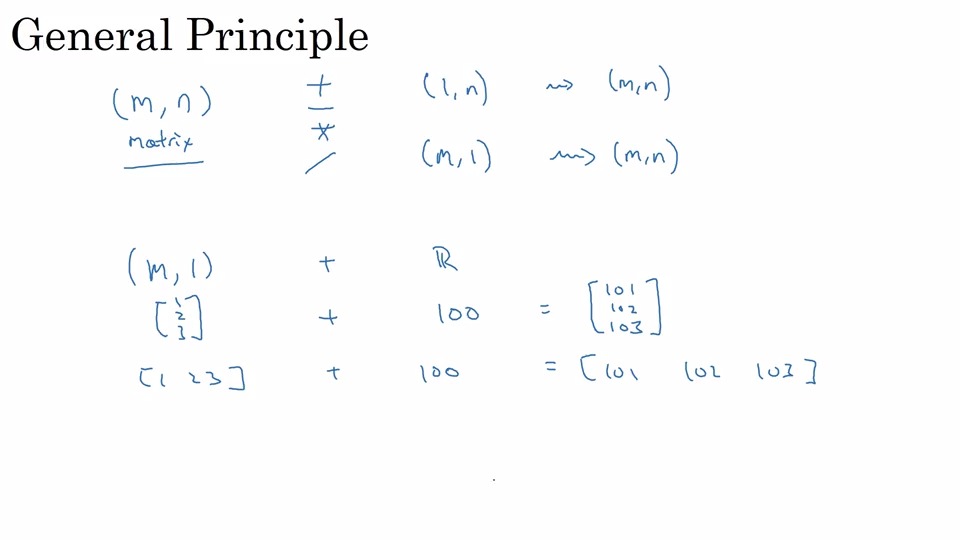 General Principle
(m, n) + (1, n) ⇝ (m, n)
matrix - *
/ (m, 1) ⇝ (m, n)
(m, 1) + ℝ
[1 2 3] + 100 = [101 102 103]
[1 2 3] + 100 = [101 102 103]